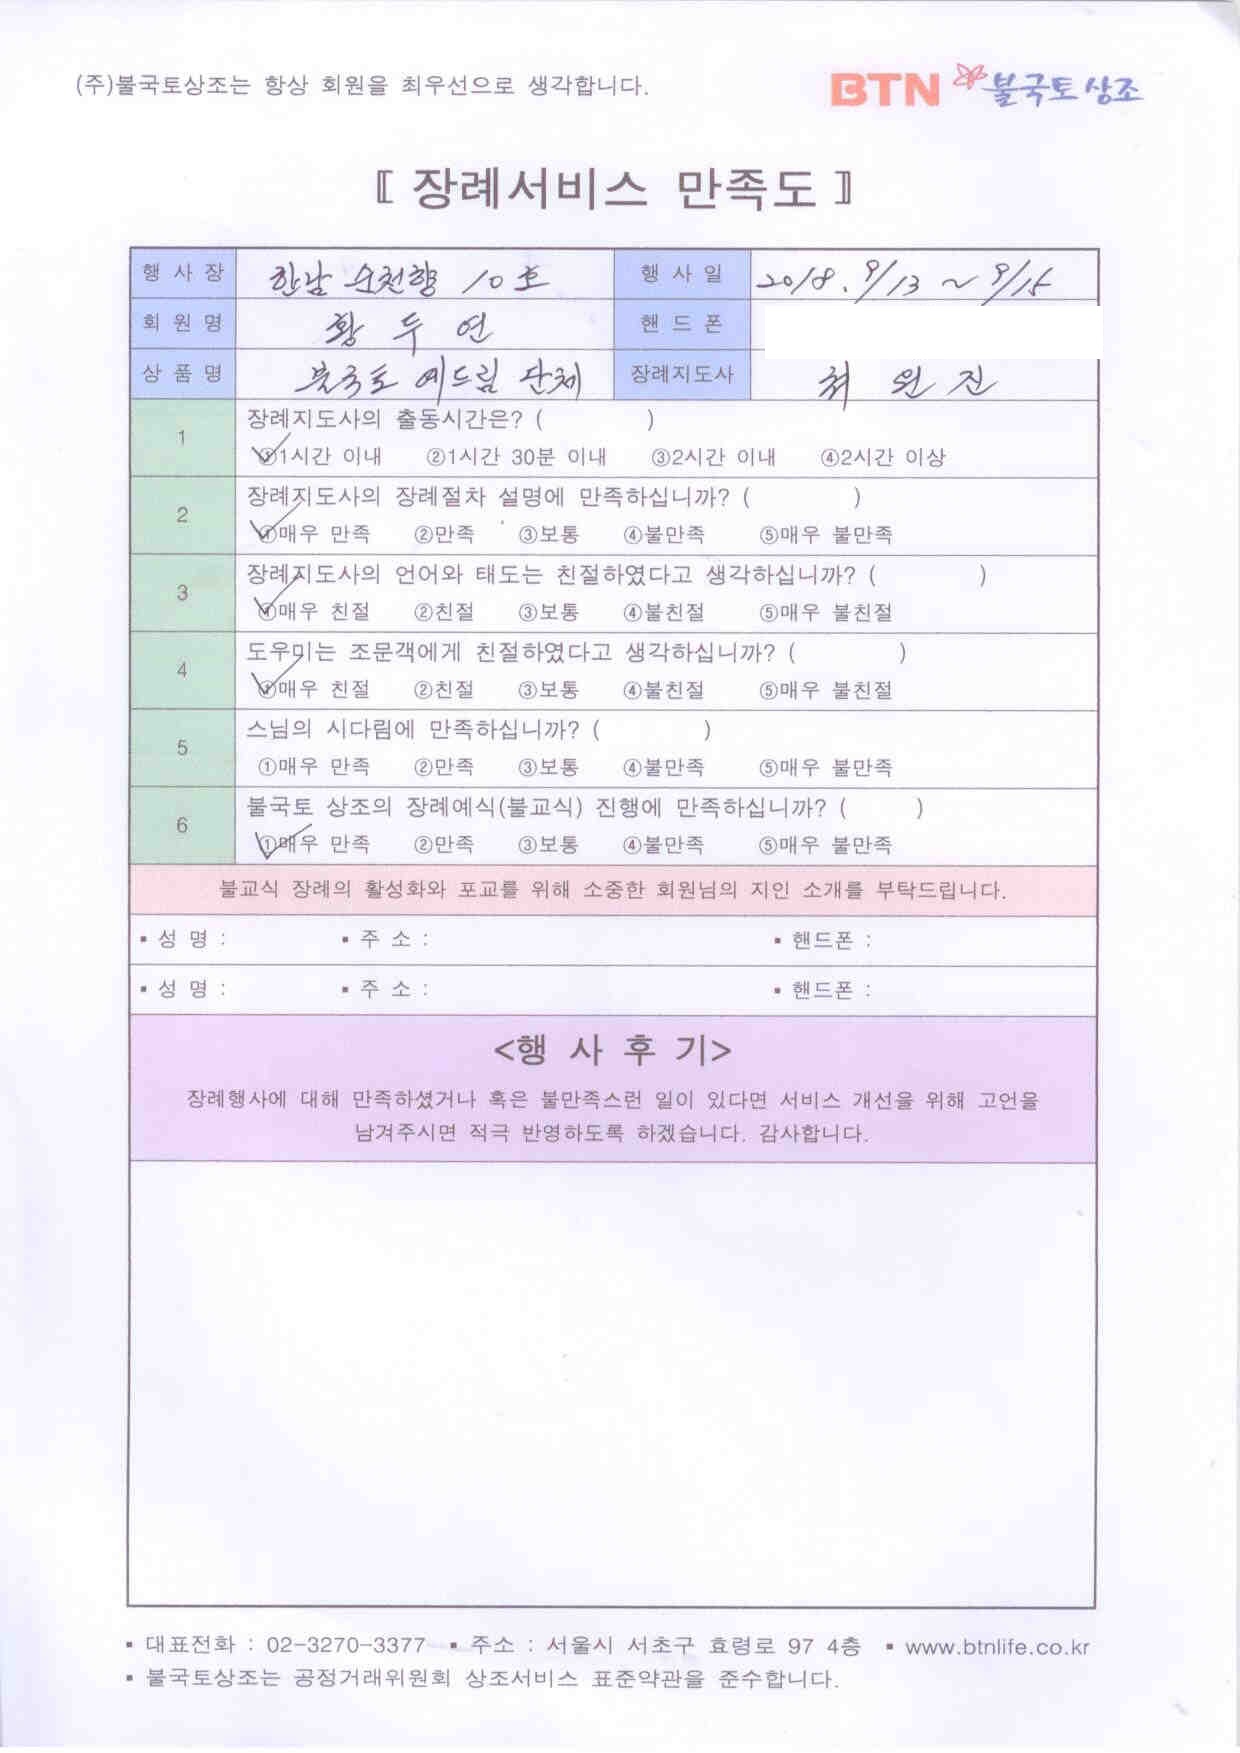 (주)불국토상조는 항상 회원을 최우선으로 생각합니다.
BTN 불국토상조
〖 장례서비스 만족도 〗
행 사 장 한남 순천향 10호 행 사 일 2018. 9/13 ~ 9/15
회 원 명 황 두 연 핸 드 폰
상 품 명 불국토 예드림 단체 장례지도사 최 원 진
1 장례지도사의 출동시간은? ( )
①1시간 이내 ②1시간 30분 이내 ③2시간 이내 ④2시간 이상
2 장례지도사의 장례절차 설명에 만족하십니까? ( )
①매우 만족 ②만족 ③보통 ④불만족 ⑤매우 불만족
3 장례지도사의 언어와 태도는 친절하였다고 생각하십니까? ( )
①매우 친절 ②친절 ③보통 ④불친절 ⑤매우 불친절
4 도우미는 조문객에게 친절하였다고 생각하십니까? ( )
①매우 친절 ②친절 ③보통 ④불친절 ⑤매우 불친절
5 스님의 시다림에 만족하십니까? ( )
①매우 만족 ②만족 ③보통 ④불만족 ⑤매우 불만족
6 불국토 상조의 장례예식(불교식) 진행에 만족하십니까? ( )
①매우 만족 ②만족 ③보통 ④불만족 ⑤매우 불만족
불교식 장례의 활성화와 포교를 위해 소중한 회원님의 지인 소개를 부탁드립니다.
▪ 성 명 : ▪ 주 소 : ▪ 핸드폰 :
▪ 성 명 : ▪ 주 소 : ▪ 핸드폰 :
<행 사 후 기>
장례행사에 대해 만족하셨거나 혹은 불만족스런 일이 있다면 서비스 개선을 위해 고언을
남겨주시면 적극 반영하도록 하겠습니다. 감사합니다.
▪ 대표전화 : 02-3270-3377 ▪ 주소 : 서울시 서초구 효령로 97 4층 ▪ www.btnlife.co.kr
▪ 불국토상조는 공정거래위원회 상조서비스 표준약관을 준수합니다.